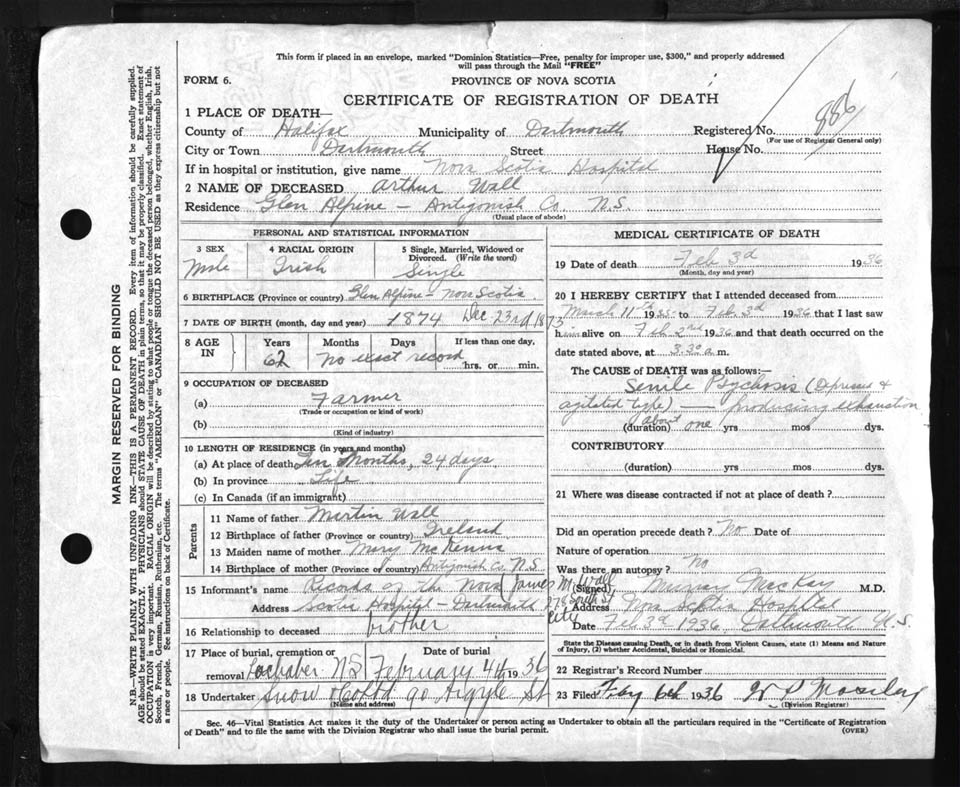 This form if placed in an envelope, marked "Dominion Statistics—Free, penalty for improper use, $300," and properly addressed
will pass through the Mail "FREE"
FORM 6.
PROVINCE OF NOVA SCOTIA
CERTIFICATE OF REGISTRATION OF DEATH
886
1 PLACE OF DEATH—
County of Halifax Municipality of Dartmouth Registered No.
(For use of Registrar General only)
City or Town Dartmouth Street House No.
If in hospital or institution, give name Nova Scotia Hospital
2 NAME OF DECEASED Arthur Wall
Residence Glen Alpine – Antigonish Co. N.S.
(Usual place of abode)
PERSONAL AND STATISTICAL INFORMATION
3 SEX Male
4 RACIAL ORIGIN Irish
5 Single, Married, Widowed or
Divorced. (Write the word)
Single
6 BIRTHPLACE (Province or country) Glen Alpine – Nova Scotia
7 DATE OF BIRTH (month, day and year) 1874 Dec 23rd 1873
8 AGE IN
Years 62 Months Days If less than one day,
No exact record hrs. or min.
9 OCCUPATION OF DECEASED
(a) Farmer
(Trade or occupation or kind of work)
(b)
(Kind of industry)
10 LENGTH OF RESIDENCE (in years and months)
(a) At place of death Ten Months, 24 days
(b) In province Life
(c) In Canada (if an immigrant)
Parents
11 Name of father Martin Wall
12 Birthplace of father (Province or country) Ireland
13 Maiden name of mother Mary McKenna
14 Birthplace of mother (Province or country) Antigonish Co. N.S.
15 Informant's name Records of the Nova James M. Wall
Address Scotia Hospital – Dartmouth 278 South St City
16 Relationship to deceased brother
17 Place of burial, cremation or
removal Lochaber N.S.
Date of burial
February 4th 1936
18 Undertaker Snow & Co Ltd 90 Argyle St
(Name and address)
MEDICAL CERTIFICATE OF DEATH
19 Date of death Feb 3d 1936
(Month, day and year)
20 I HEREBY CERTIFY that I attended deceased from
March 11th 1935 to Feb. 3d 1936 that I last saw
him alive on Feb 2nd 1936 and that death occurred on the
date stated above, at 3.30 a.m.
The CAUSE of DEATH was as follows:—
Senile Psychosis (Depressed &
agitated type) – producing exhaustion
(duration) about one yrs mos dys.
CONTRIBUTORY
(duration) yrs mos dys.
21 Where was disease contracted if not at place of death?
Did an operation precede death? No Date of
Nature of operation
Was there an autopsy? No
(Signed) Murray MacKay M.D.
Address Nova Scotia Hospital
Date Feb 3d 1936 Dartmouth N.S.
State the Disease causing Death, or in death from Violent Causes, state (1) Means and Nature
of Injury, (2) whether Accidental, Suicidal or Homicidal.
22 Registrar's Record Number
23 Filed 1936
(Division Registrar)
Sec. 46—Vital Statistics Act makes it the duty of the Undertaker or person acting as Undertaker to obtain all the particulars required in the "Certificate of Registration
of Death" and to file the same with the Division Registrar who shall issue the burial permit.
(OVER)
MARGIN RESERVED FOR BINDING
N.B.—WRITE PLAINLY WITH UNFADING INK—THIS IS A PERMANENT RECORD. Every item of information should be carefully supplied.
AGE should be stated EXACTLY. PHYSICIANS should STATE CAUSE OF DEATH in plain terms, so that it may be properly classified. Exact statement of
OCCUPATION is very important. RACIAL ORIGIN will be described by stating to what people or tongue the deceased person belonged, whether English, Irish,
Scotch, French, German, Russian, Ruthenian, etc. The terms "AMERICAN" or "CANADIAN" SHOULD NOT BE USED as they express citizenship but not
a race or people. See instructions on back of Certificate.